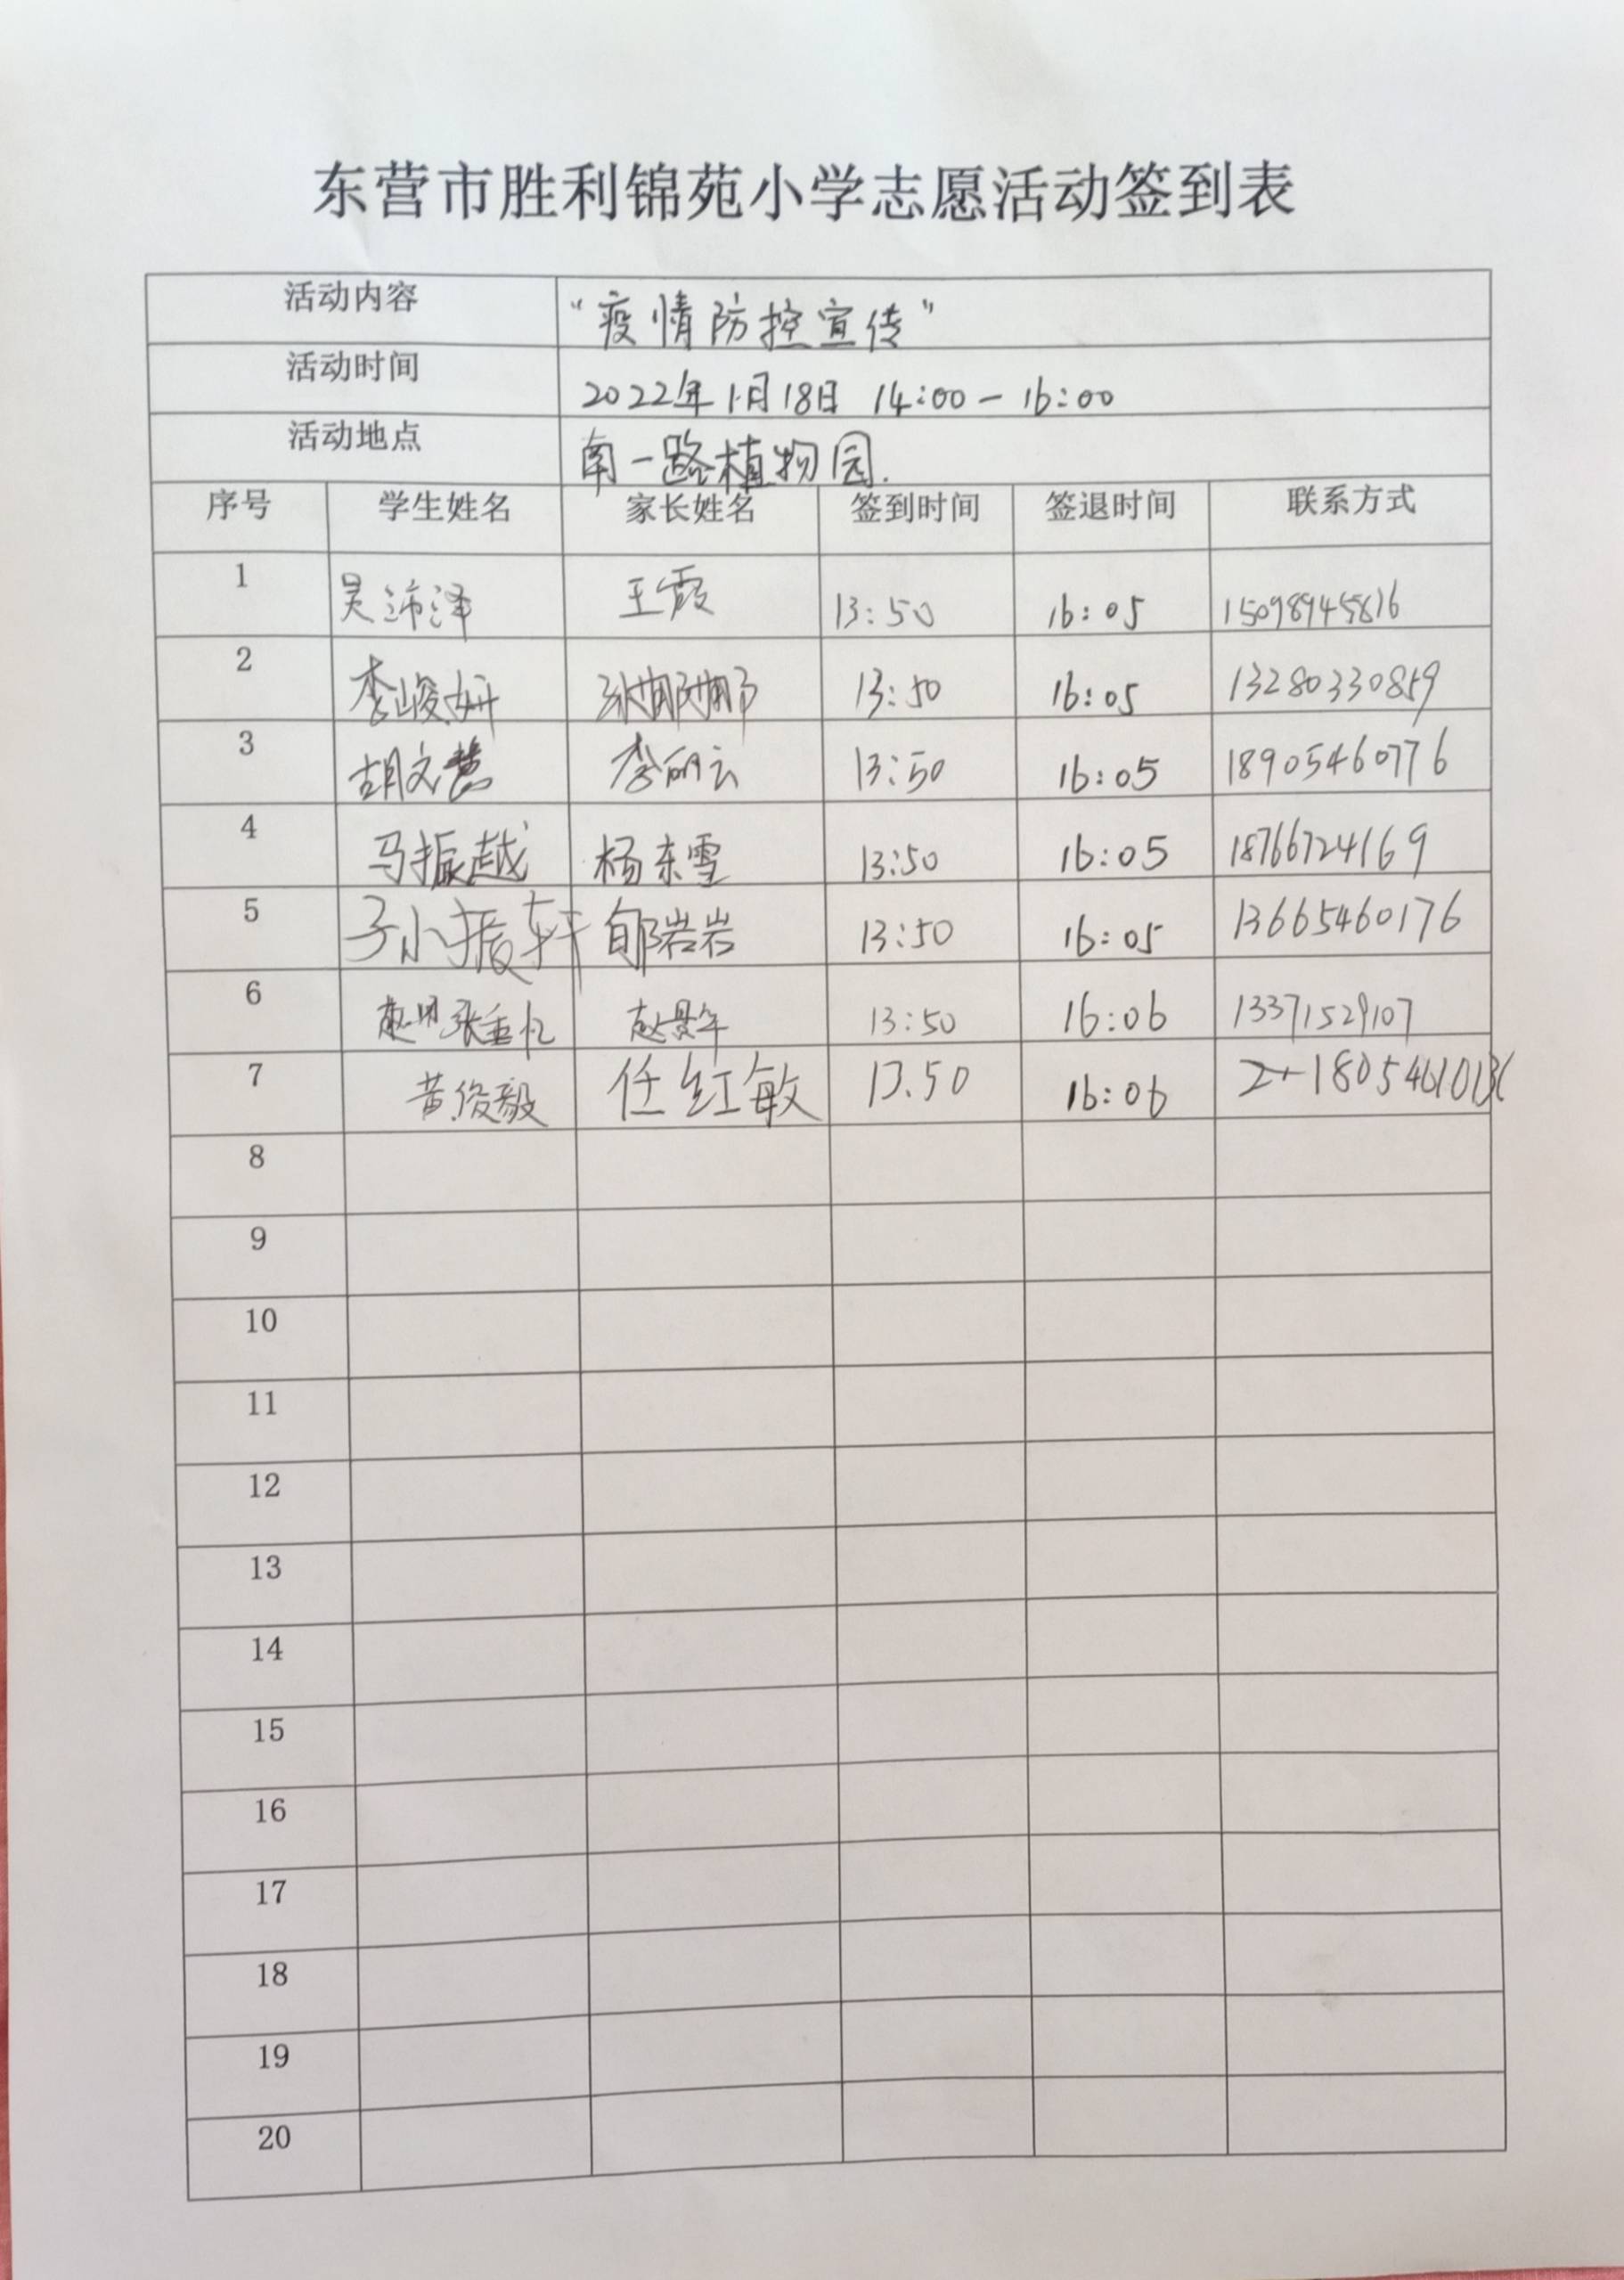 东营市胜利锦苑小学志愿活动签到表
活动内容 "疫情防控宣传"
活动时间 2022年1月18日 14:00-16:00
活动地点 南一路植物园.
序号 学生姓名 家长姓名 签到时间 签退时间 联系方式
1 吴沛泽 王霞 13:50 16:05 15098945816
2 李峻妍 孙娜娜 13:50 16:05 13280330859
3 胡文慧 李丽云 13:50 16:05 18905460776
4 马振越 杨东雪 13:50 16:05 18766724169
5 孙振轩 郇岩岩 13:50 16:05 13665460176
6 13:50 16:06 13371529107
7 黄俊毅 任红敏 13.50 16:06
8
9
10
11
12
13
14
15
16
17
18
19
20